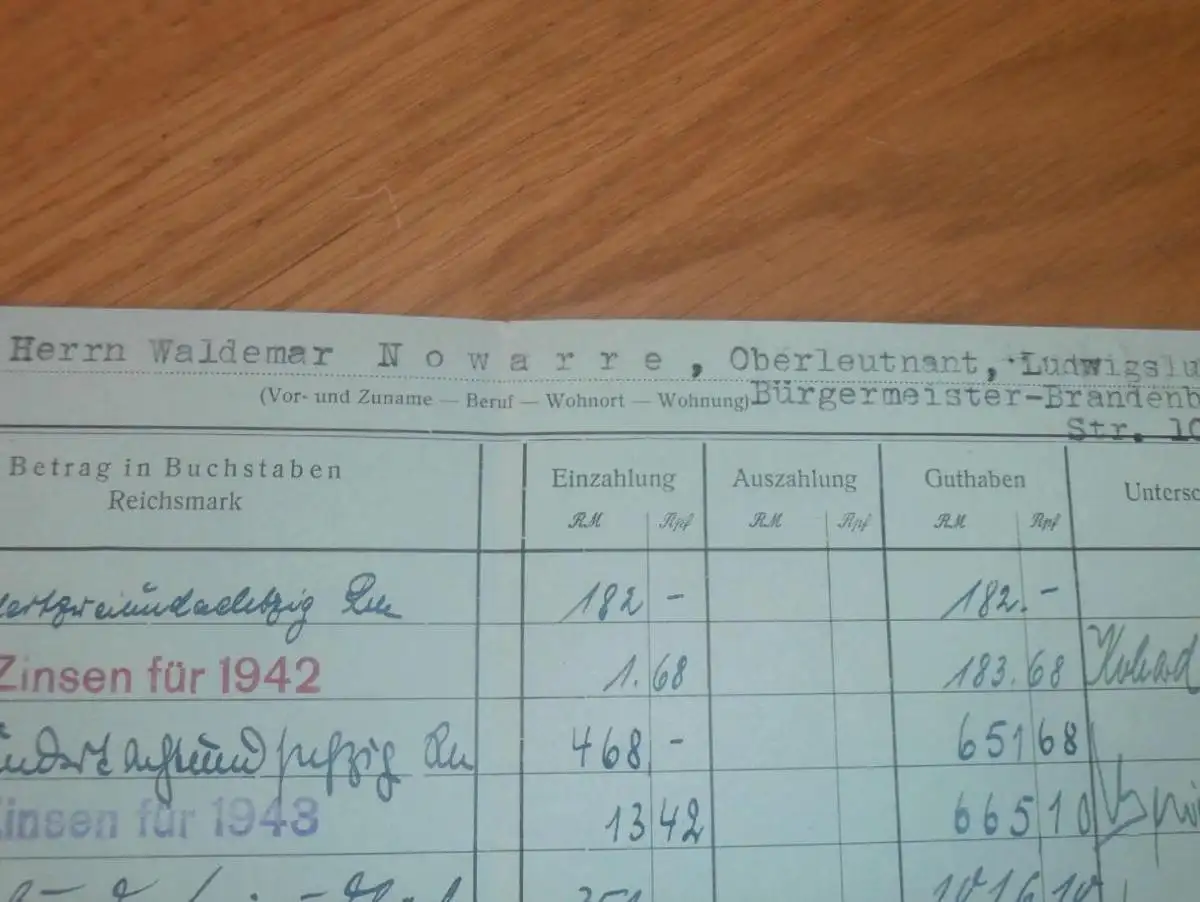 Herrn Waldemar N o w a r r e , Oberleutnant, Ludwigslu
(Vor- und Zuname — Beruf — Wohnort — Wohnung) Bürgermeister-Brandenb
Str. 10
Betrag in Buchstaben Einzahlung Auszahlung Guthaben Untersc
Reichsmark RM Rpf RM Rpf RM Rpf
ertzweiundachtzig RM 182 - 182. -
Zinsen für 1942 1. 68 183. 68
undertachtundsechzig RM 468 - 651 68
insen für 1943 13 42 665 10
351 1016 10